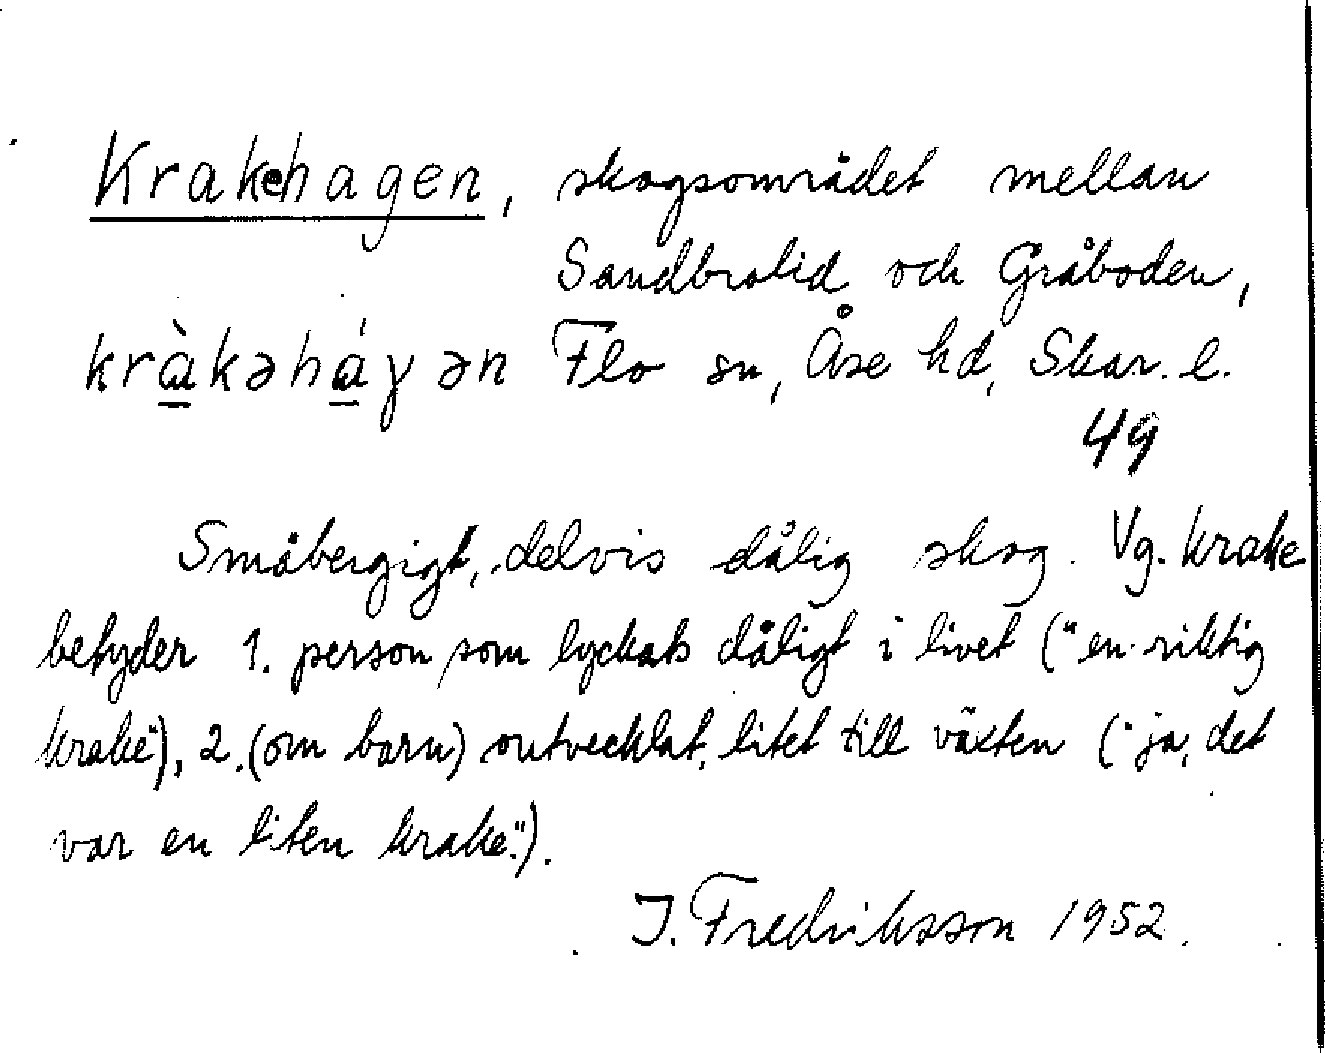 Krakehagen, skogsområdet mellan
Sandbrolid och Gråboden,
kràkəháγən Flo sn, Åse hd, Skar. l.
49
Småbergigt, delvis dålig skog. Vg. krake
betyder 1. person som lyckats dåligt i livet ("en riktig
krake"), 2. (om barn) outvecklat, litet till växten ("ja, det
var en liten krake").
J. Fredriksson 1952.